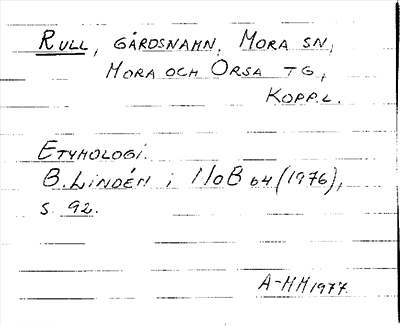 RULL, GÅRDSNAMN, MORA SN,
MORA OCH ORSA TG,
KOPP.L.
ETYMOLOGI.
B. LINDÉN i NoB 64 (1976),
S. 92.
A-MM 1977